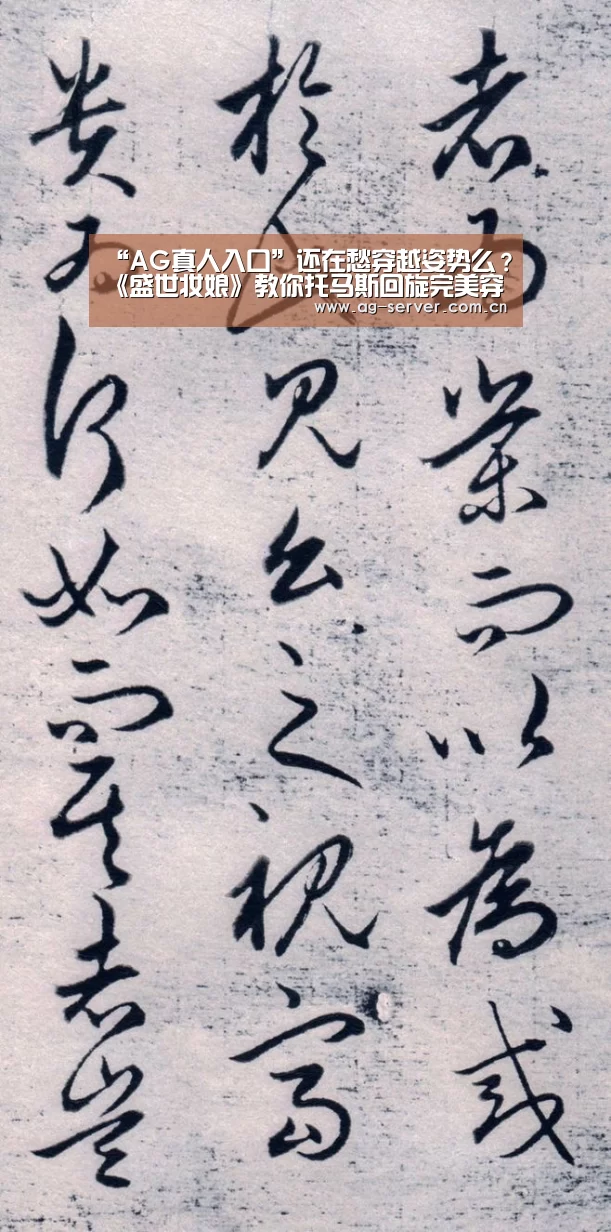 “AG真人入口”还在愁穿越姿势么？
《盛世妆娘》教你托马斯回旋完美穿
www.ag-server.com.cn
者業而以為或
於人見公之視富
貴如而其者豈